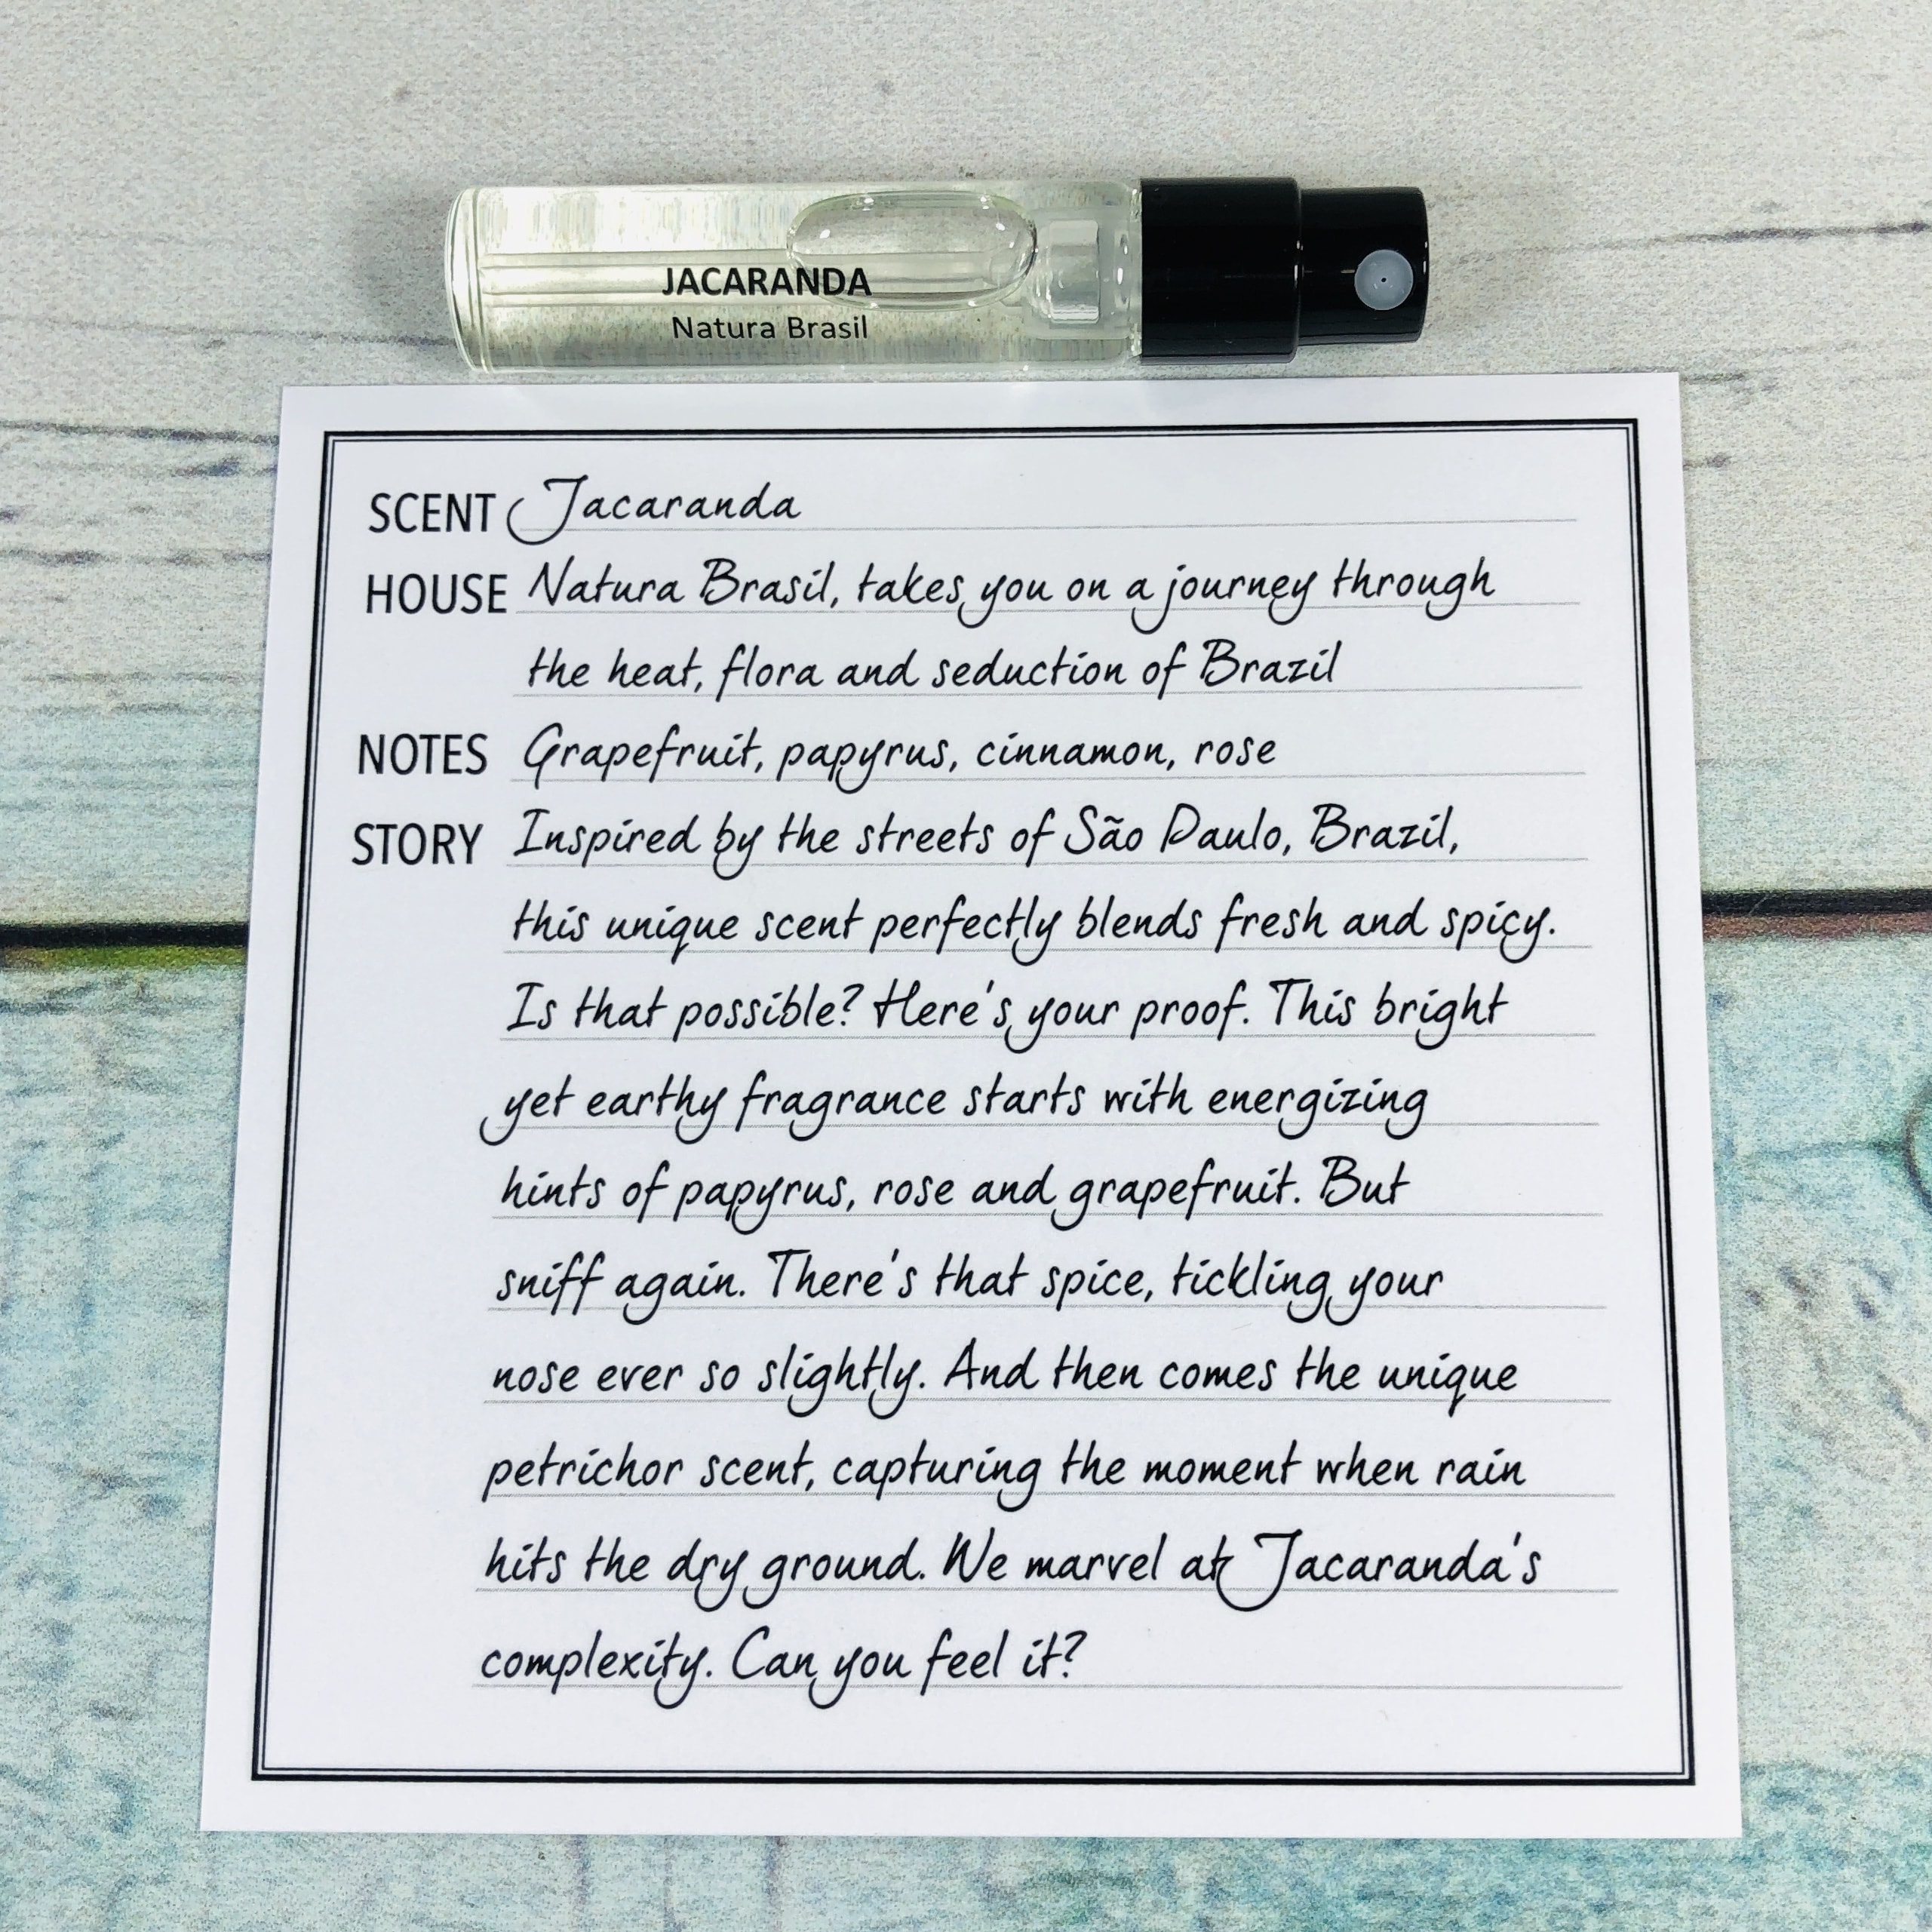 JACARANDA
Natura Brasil
SCENT Jacaranda
HOUSE Natura Brasil, takes you on a journey through
the heat, flora and seduction of Brazil
NOTES Grapefruit, papyrus, cinnamon, rose
STORY Inspired by the streets of São Paulo, Brazil,
this unique scent perfectly blends fresh and spicy.
Is that possible? Here's your proof. This bright
yet earthy fragrance starts with energizing
hints of papyrus, rose and grapefruit. But
sniff again. There's that spice, tickling your
nose ever so slightly. And then comes the unique
petrichor scent, capturing the moment when rain
hits the dry ground. We marvel at Jacaranda's
complexity. Can you feel it?